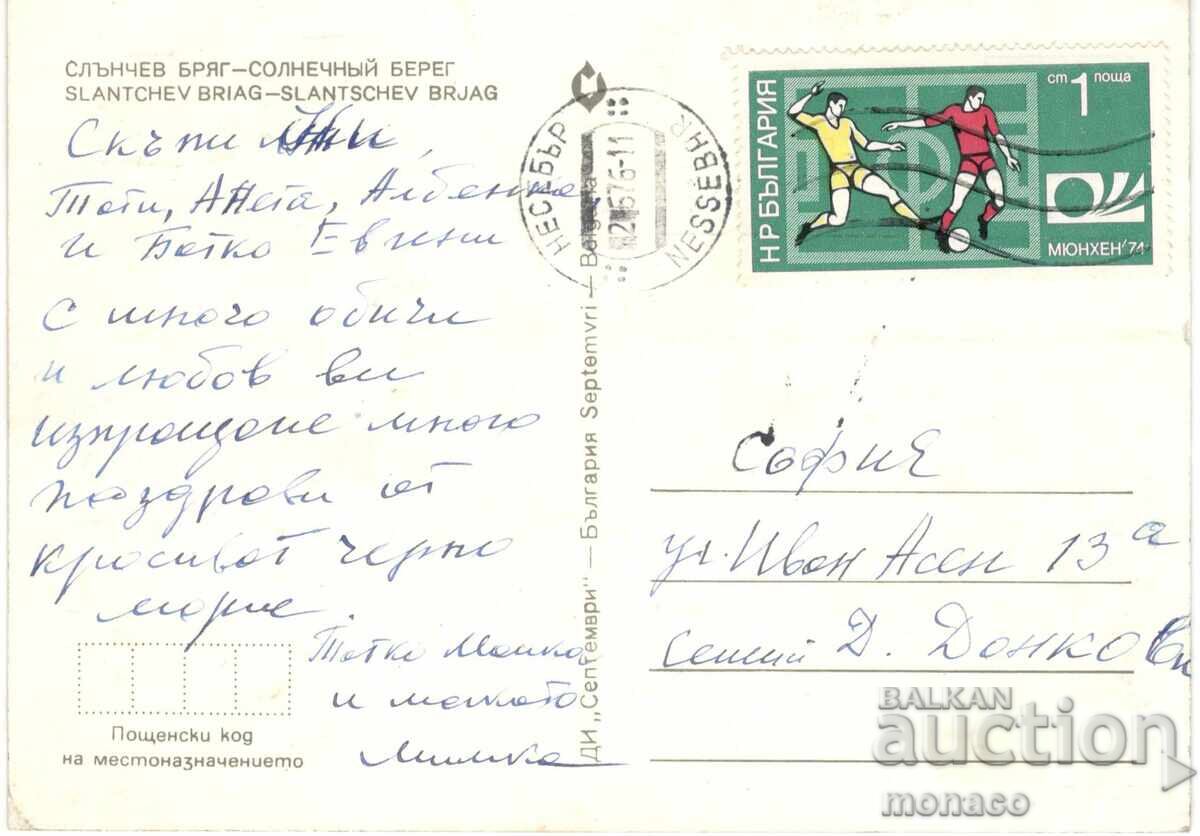 СЛЪНЧЕВ БРЯГ—СОЛНЕЧНЫЙ БЕРЕГ
SLANTCHEV BRIAG—SLANTSCHEV BRJAG
Скъпи
Тоти, Анета, Албенка
и Батко Евгени
с много обич
и любов ви
изпращаме много
поздрави от
красивот черно
море.
Татко Майка
и малката
Милка
Пощенски код
на местоназначението
ДИ „Септември" — България Septemvri — Bulgaria
НЕСЕБЪР
NESSEBHR
НР БЪЛГАРИЯ
ст 1 поща
МЮНХЕН'74
София
ул. Иван Асен 13 а
семей Д. Донкови
BALKAN
auction
monaco